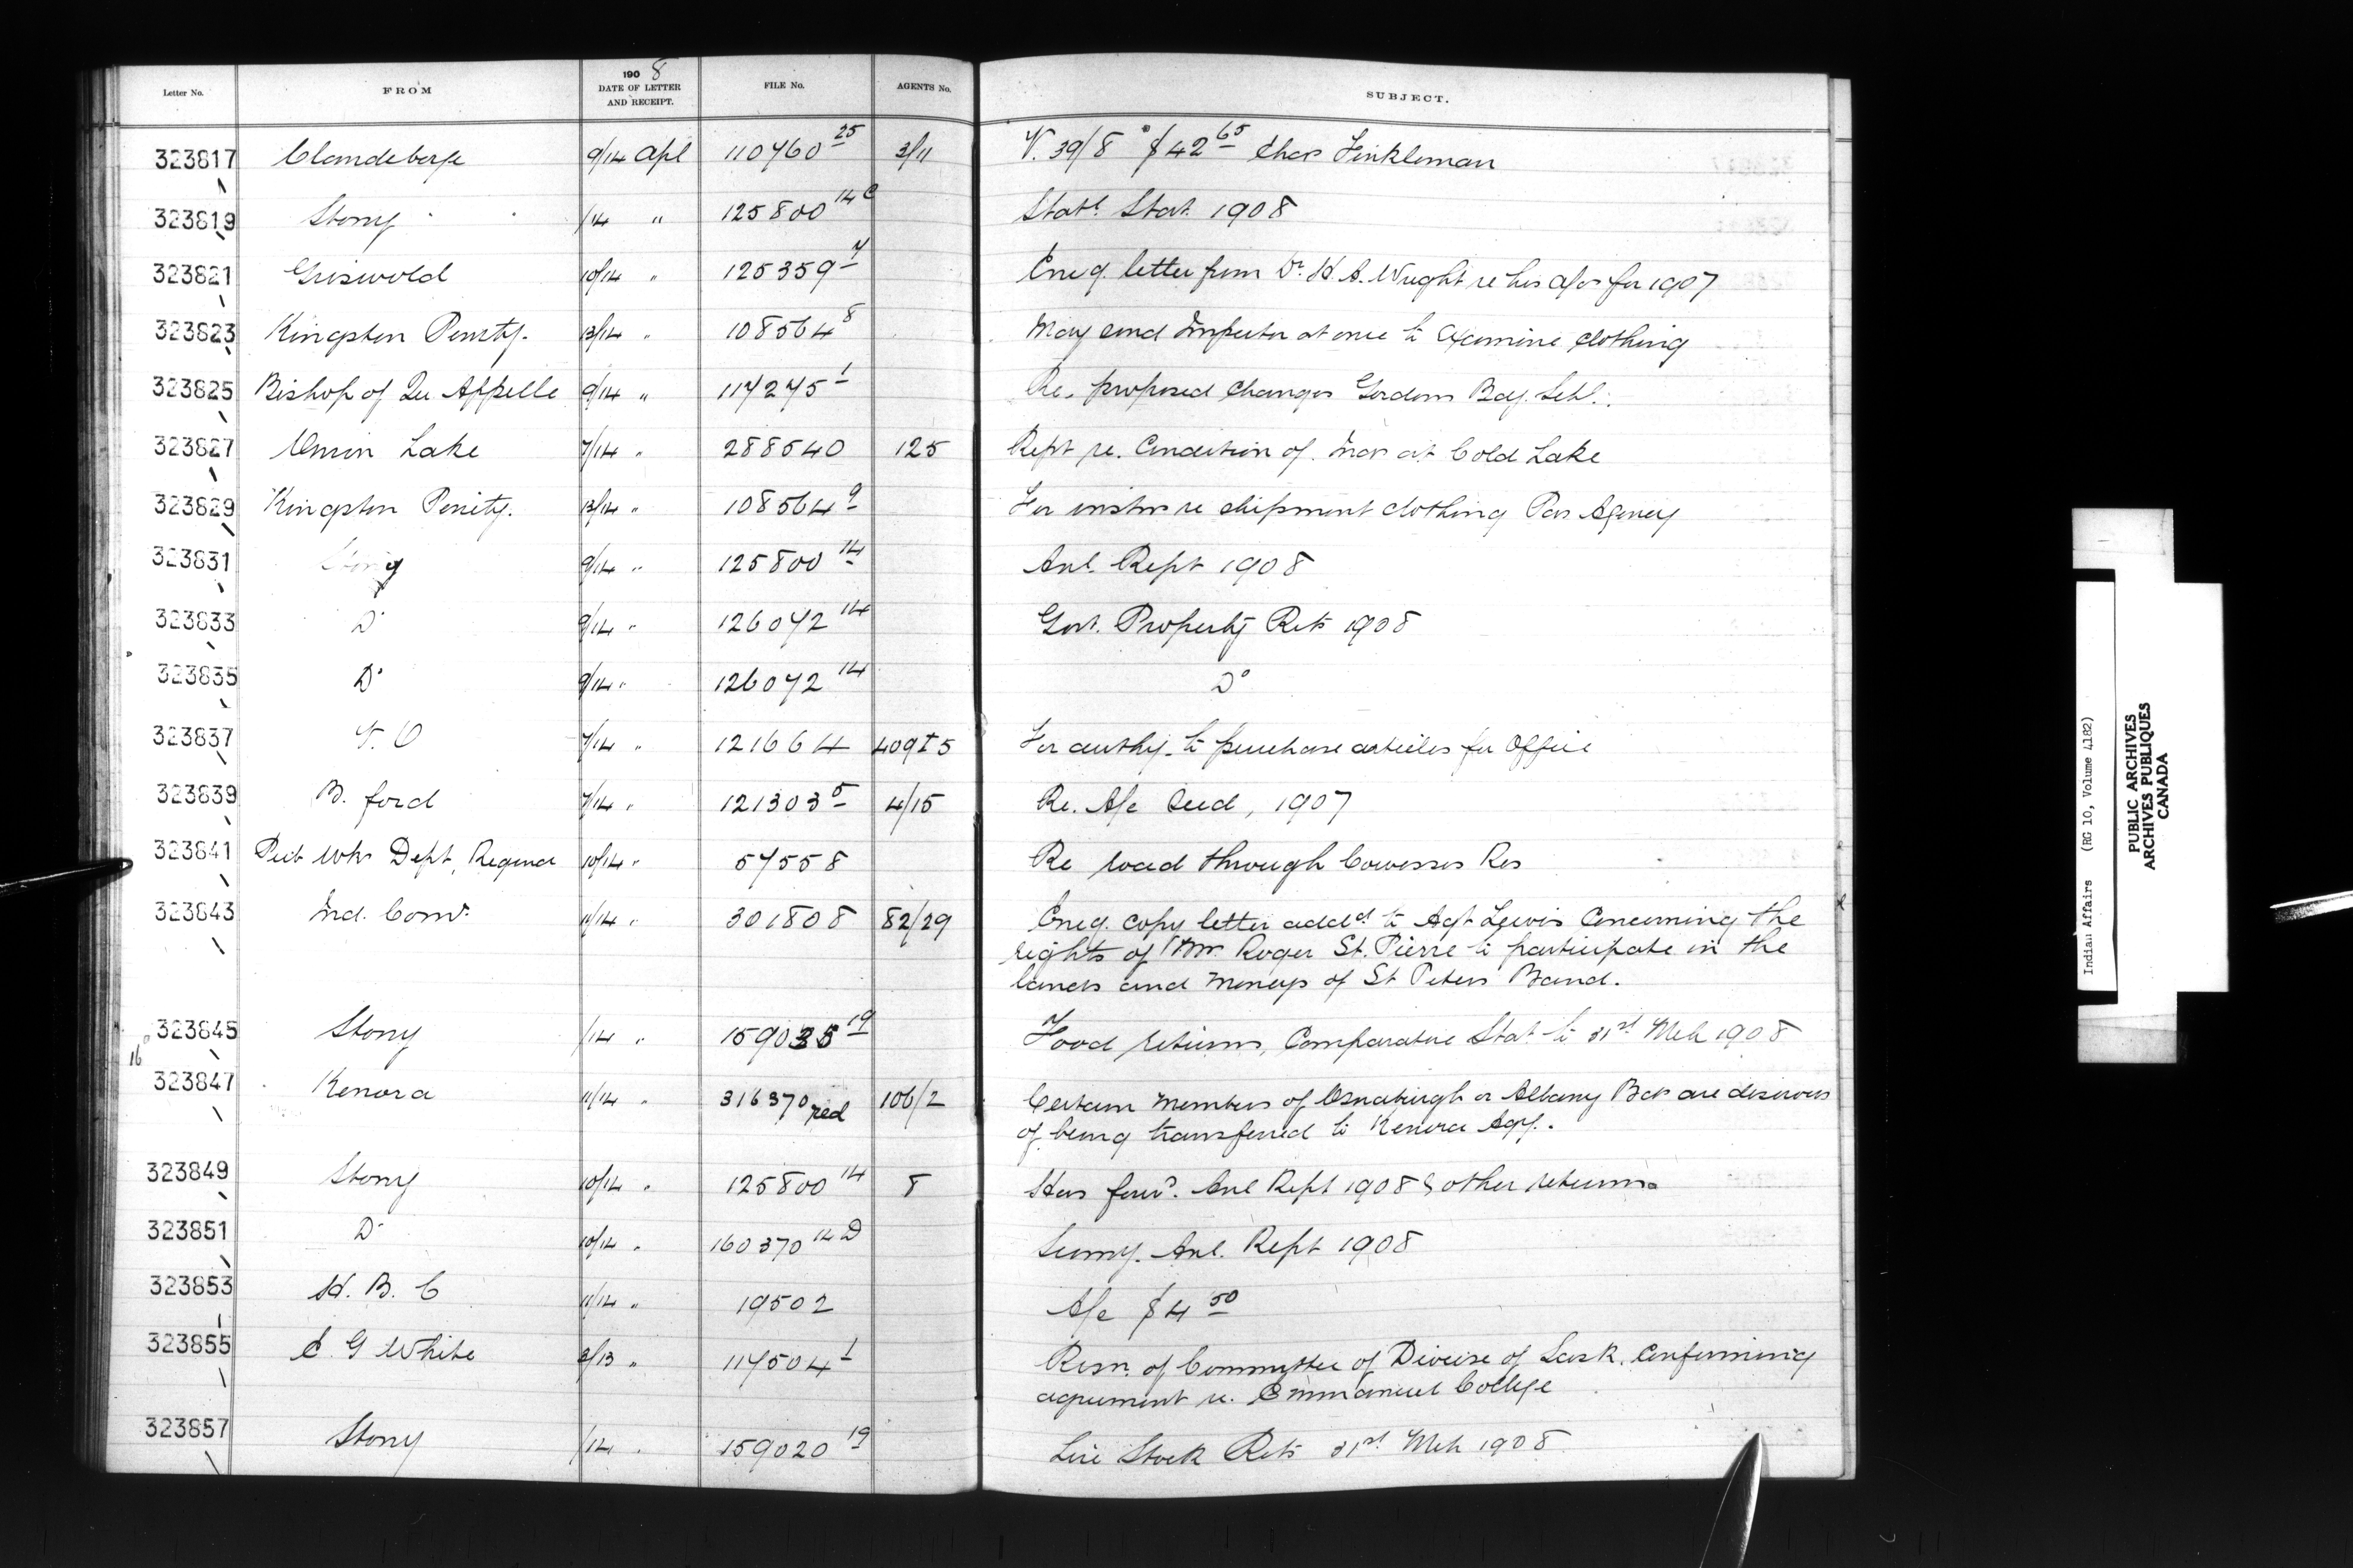 1908
Letter No. FROM DATE OF LETTER AND RECEIPT. FILE No. AGENTS No. SUBJECT.
323817 Clandeboye 9/14 Apl 110760 25 3/11 V. 39/8 $42 65 Chas Finkleman
323819 Stony /14 " 125800 14C Statl. Stat. 1908
323821 Griswold 10/14 " 125359 7 Encg. letter from Dr. H. A. Wright re his a/cs for 1907
323823 Kingston Penity. 13/14 " 108564 8 May send Inspector at once to examine clothing
323825 Bishop of Qu Appelle 9/14 " 117275 1 Re. proposed changes Gordons Bdg. Schl.
323827 Onion Lake 7/14 " 288540 125 Rept re. Condition of Inds at Cold Lake
323829 Kingston Penity. 13/14 " 108564 9 For instns re shipment clothing Pas Agency
323831 Stony 9/14 " 125800 14 Anl. Rept 1908
323833 Do 9/14 " 126072 14 Govt. Property Rets 1908
323835 Do 9/14 " 126072 14 Do
323837 7/14 " 121664 409 I 5 For authy. to purchase articles for Office
323839 B. ford 7/14 " 121303 5 4/15 Re. A/c Seed, 1907
323841 Pub Wks Dept, Regina 10/14 " 57558 Re road through Cowesses Res
323843 Ind. Comr. 11/14 " 301808 82/29 Encg. copy letter addd. to Agt Lewis Concerning the
rights of Roger St. Pierre to participate in the
lands and moneys of St Peters Band.
323845 Stony /14 " 159035 19 Food returns, Comparative Stat to 31st Mch 1908
16
323847 Kenora 11/14 " 316370 red 106/2 Certain members of Osnaburgh or Albany Bds are desirous
of being transferred to Kenora Agy.
323849 Stony 10/14 " 125800 14 8 Has forwd. Anl Rept 1908 & other returns
323851 Do 10/14 " 160370 14D Summy. Anl. Rept 1908
323853 H. B. C 11/14 " 19502 A/c $4 50
323855 C. G White 3/13 " 117504 1 Resn. of Committee of Diocese of Sask. Confirming
agreement re. Emmanuel College
323857 Stony /14 " 159020 19 Live Stock Rets 31st Mch 1908
Indian Affairs (RG 10, Volume 4182)
PUBLIC ARCHIVES
ARCHIVES PUBLIQUES
CANADA